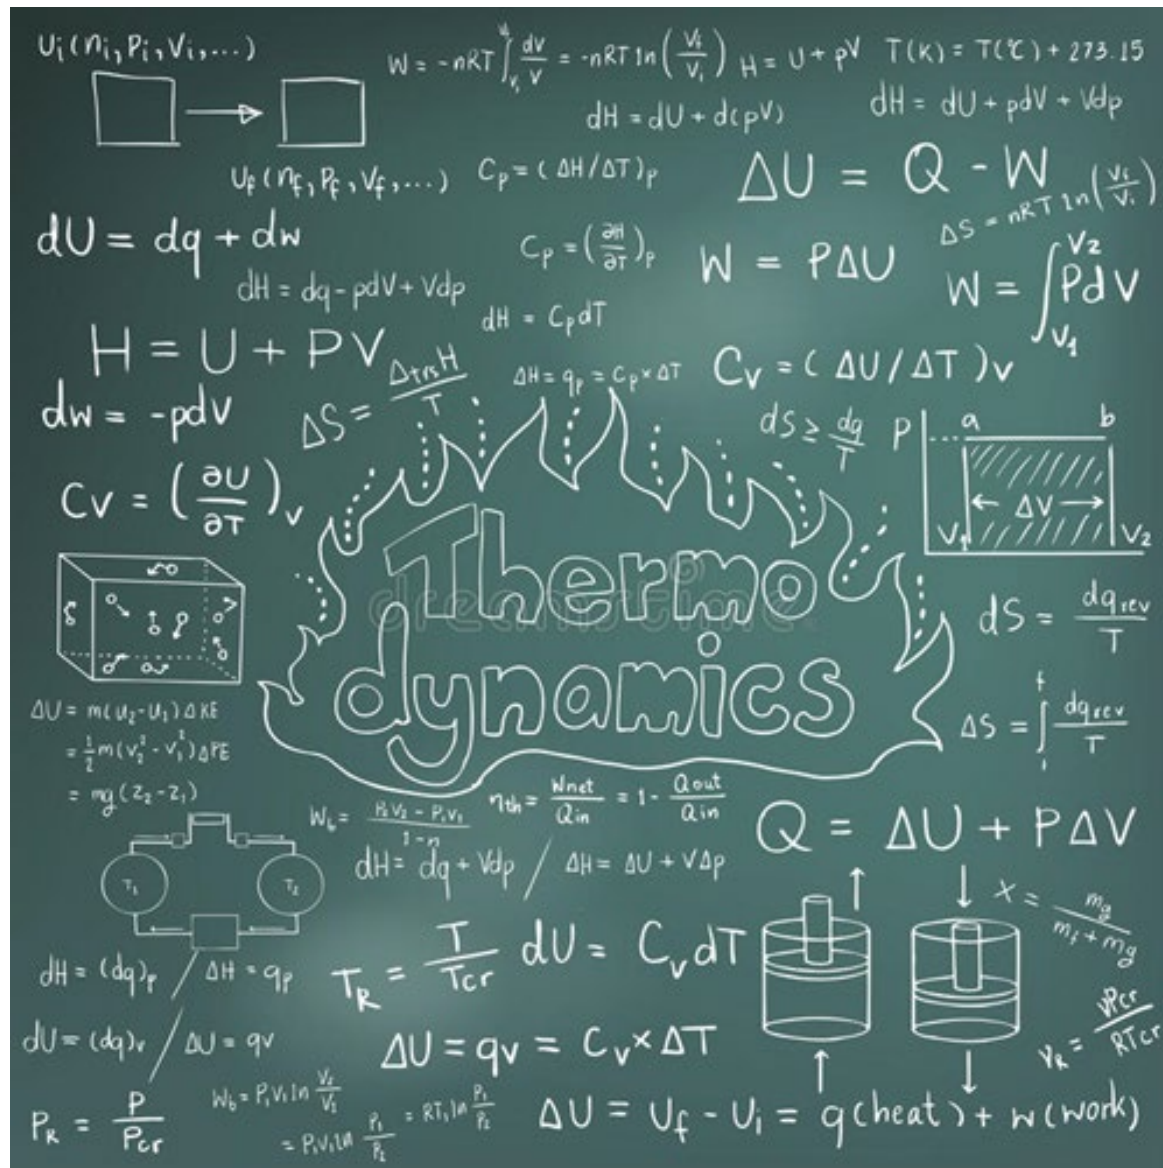 Ui(ni,Pi,Vi,...)
W = -nRT ∫ᵥᵢ^Vf dv/V = -nRT ln (Vf/Vi)
H = U + pV
T(K) = T(℃) + 273.15
dH = dU + d(pV)
dH = dU + pdV + Vdp
Uf(nf,Pf,Vf,...)
Cp = (ΔH/ΔT)p
ΔU = Q - W
ΔS = nRT ln(Vf/Vi)
dU = dq + dw
Cp = (∂H/∂T)p
W = PΔU
W = ∫V1^V2 PdV
dH = dq - pdV + Vdp
dH = CpdT
H = U + PV
ΔS = ΔtrsH/T
ΔH = qp = Cp×ΔT
Cv = (ΔU/ΔT)v
dw = -pdV
dS ≥ dq/T
P a b
ΔV
V1 V2
Cv = (∂U/∂T)v
Thermo
dynamics
dreamstime
dS = dqrev/T
ΔU = m(u2-u1)ΔKE
= 1/2 m(v2²-v1²)ΔPE
= mg(z2-z1)
ΔS = ∫i^f dqrev/T
Wb = P2V2 - P1V1/1-n
ηth = Wnet/Qin = 1 - Qout/Qin
Q = ΔU + PΔV
dH = dq + Vdp / ΔH = ΔU + VΔp
T1 T2
X = mg/mf + mg
TR = T/Tcr
dU = CvdT
dH = (dq)p / ΔH = qp
dU = (dq)v / ΔU = qv
ΔU = qv = Cv×ΔT
νR = νPcr/RTcr
PR = P/Pcr
Wb = P1V1 ln V2/V1
= P1V1 ln P1/P2 = RT1 ln P1/P2
ΔU = Uf - Ui = q(heat) + w(work)